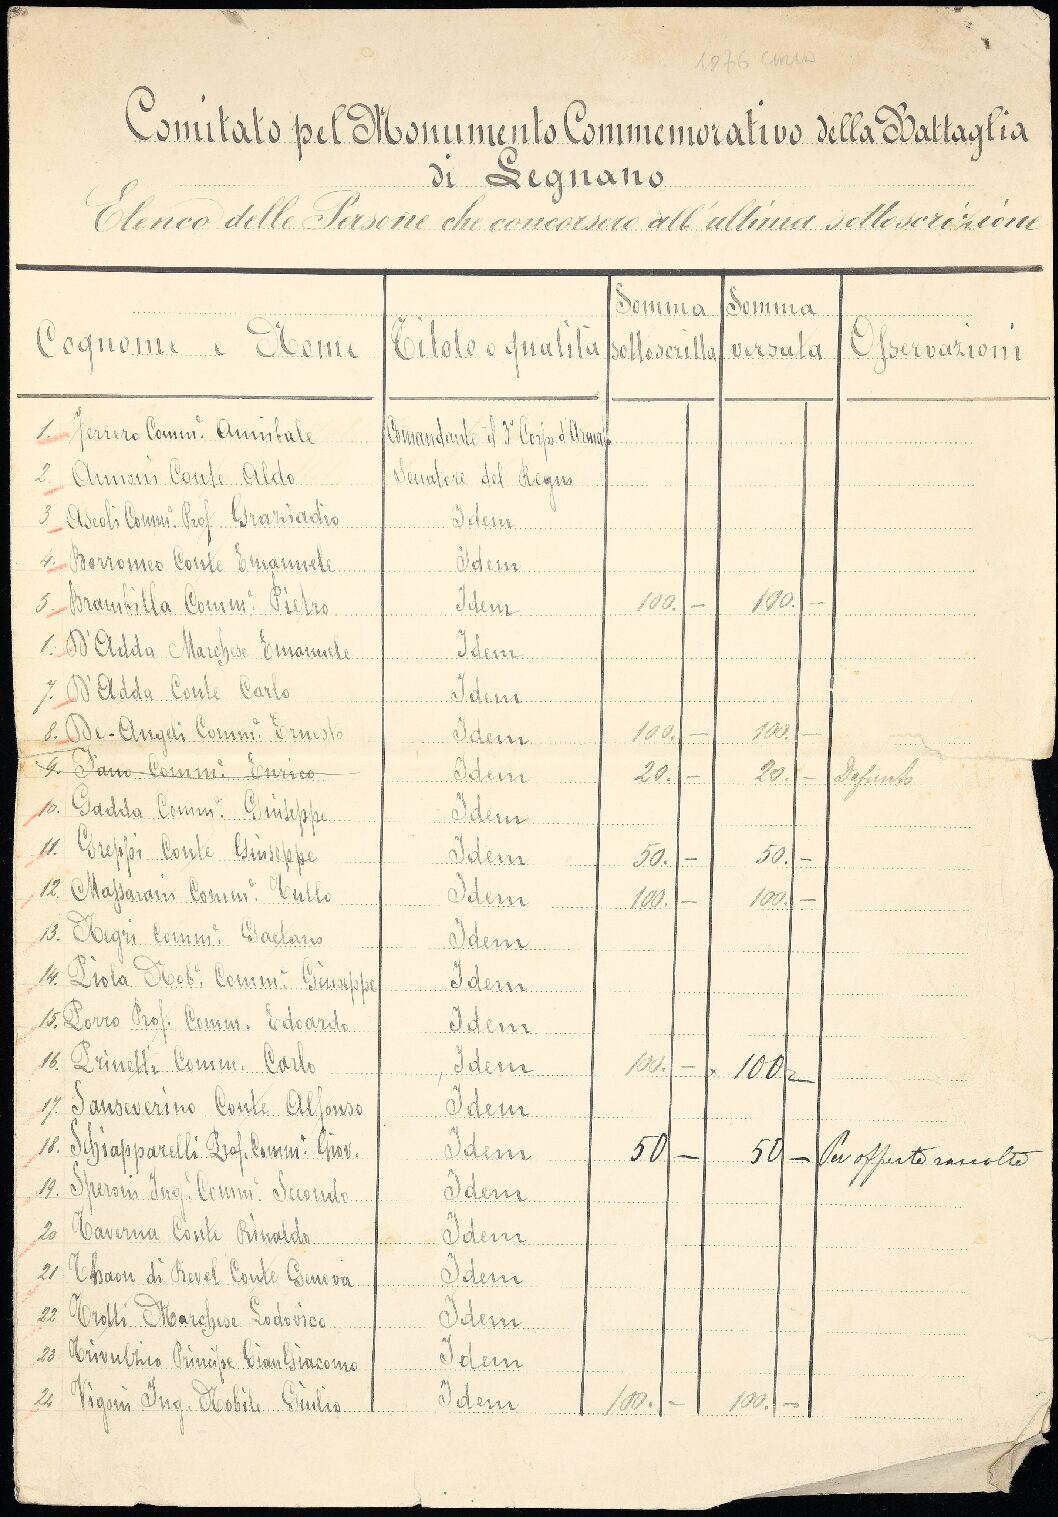 1876 circa
Comitato pel Monumento Commemorativo della Battaglia
di Legnano
Elenco delle Persone che concorsero all'ultima sottoscrizione
Cognome e Nome Titolo o qualità Somma sottoscritta Somma versata Osservazioni
1. Ferrero Comm.e Annibale Comandante il 3° Corpo d'Arma
2. Annoni Conte Aldo Senatore del Regno
3 Ascoli Comm.e Prof. Graziadio Idem
4. Borromeo Conte Emanuele Idem
5. Brambilla Comm.e Pietro Idem 100. — 100. —
1. D'Adda Marchese Emanuele Idem
7. D'Adda Conte Carlo Idem
8. De-Angeli Comm.e Ernesto Idem 100. — 100. —
9. Fano Comm.e Enrico Idem 20. — 20. — Defunto
10. Gadda Comm.e Giuseppe Idem
11. Greppi Conte Giuseppe Idem 50. — 50. —
12. Massarani Comm.e Tullo Idem 100. — 100. —
13. Negri Comm.e Gaetano Idem
14. Piola Nob.e Comm.e Giuseppe Idem
15. Porro Prof. Comm. Edoardo Idem
16. Prinetti Comm. Carlo Idem 100. — 100 —
17. Sanseverino Conte Alfonso Idem
18. Schiapparelli Prof. Comm.e Giov. Idem 50 — 50 — Per offerte raccolte
19. Speroni Ing.e Comm.e Secondo Idem
20 Taverna Conte Rinaldo Idem
21 Thaon di Revel Conte Genova Idem
22 Trotti Marchese Lodovico Idem
23 Trivulzio Principe Gian Giacomo Idem
24 Vigoni Ing. Nobile Giulio Idem 100. — 100. —